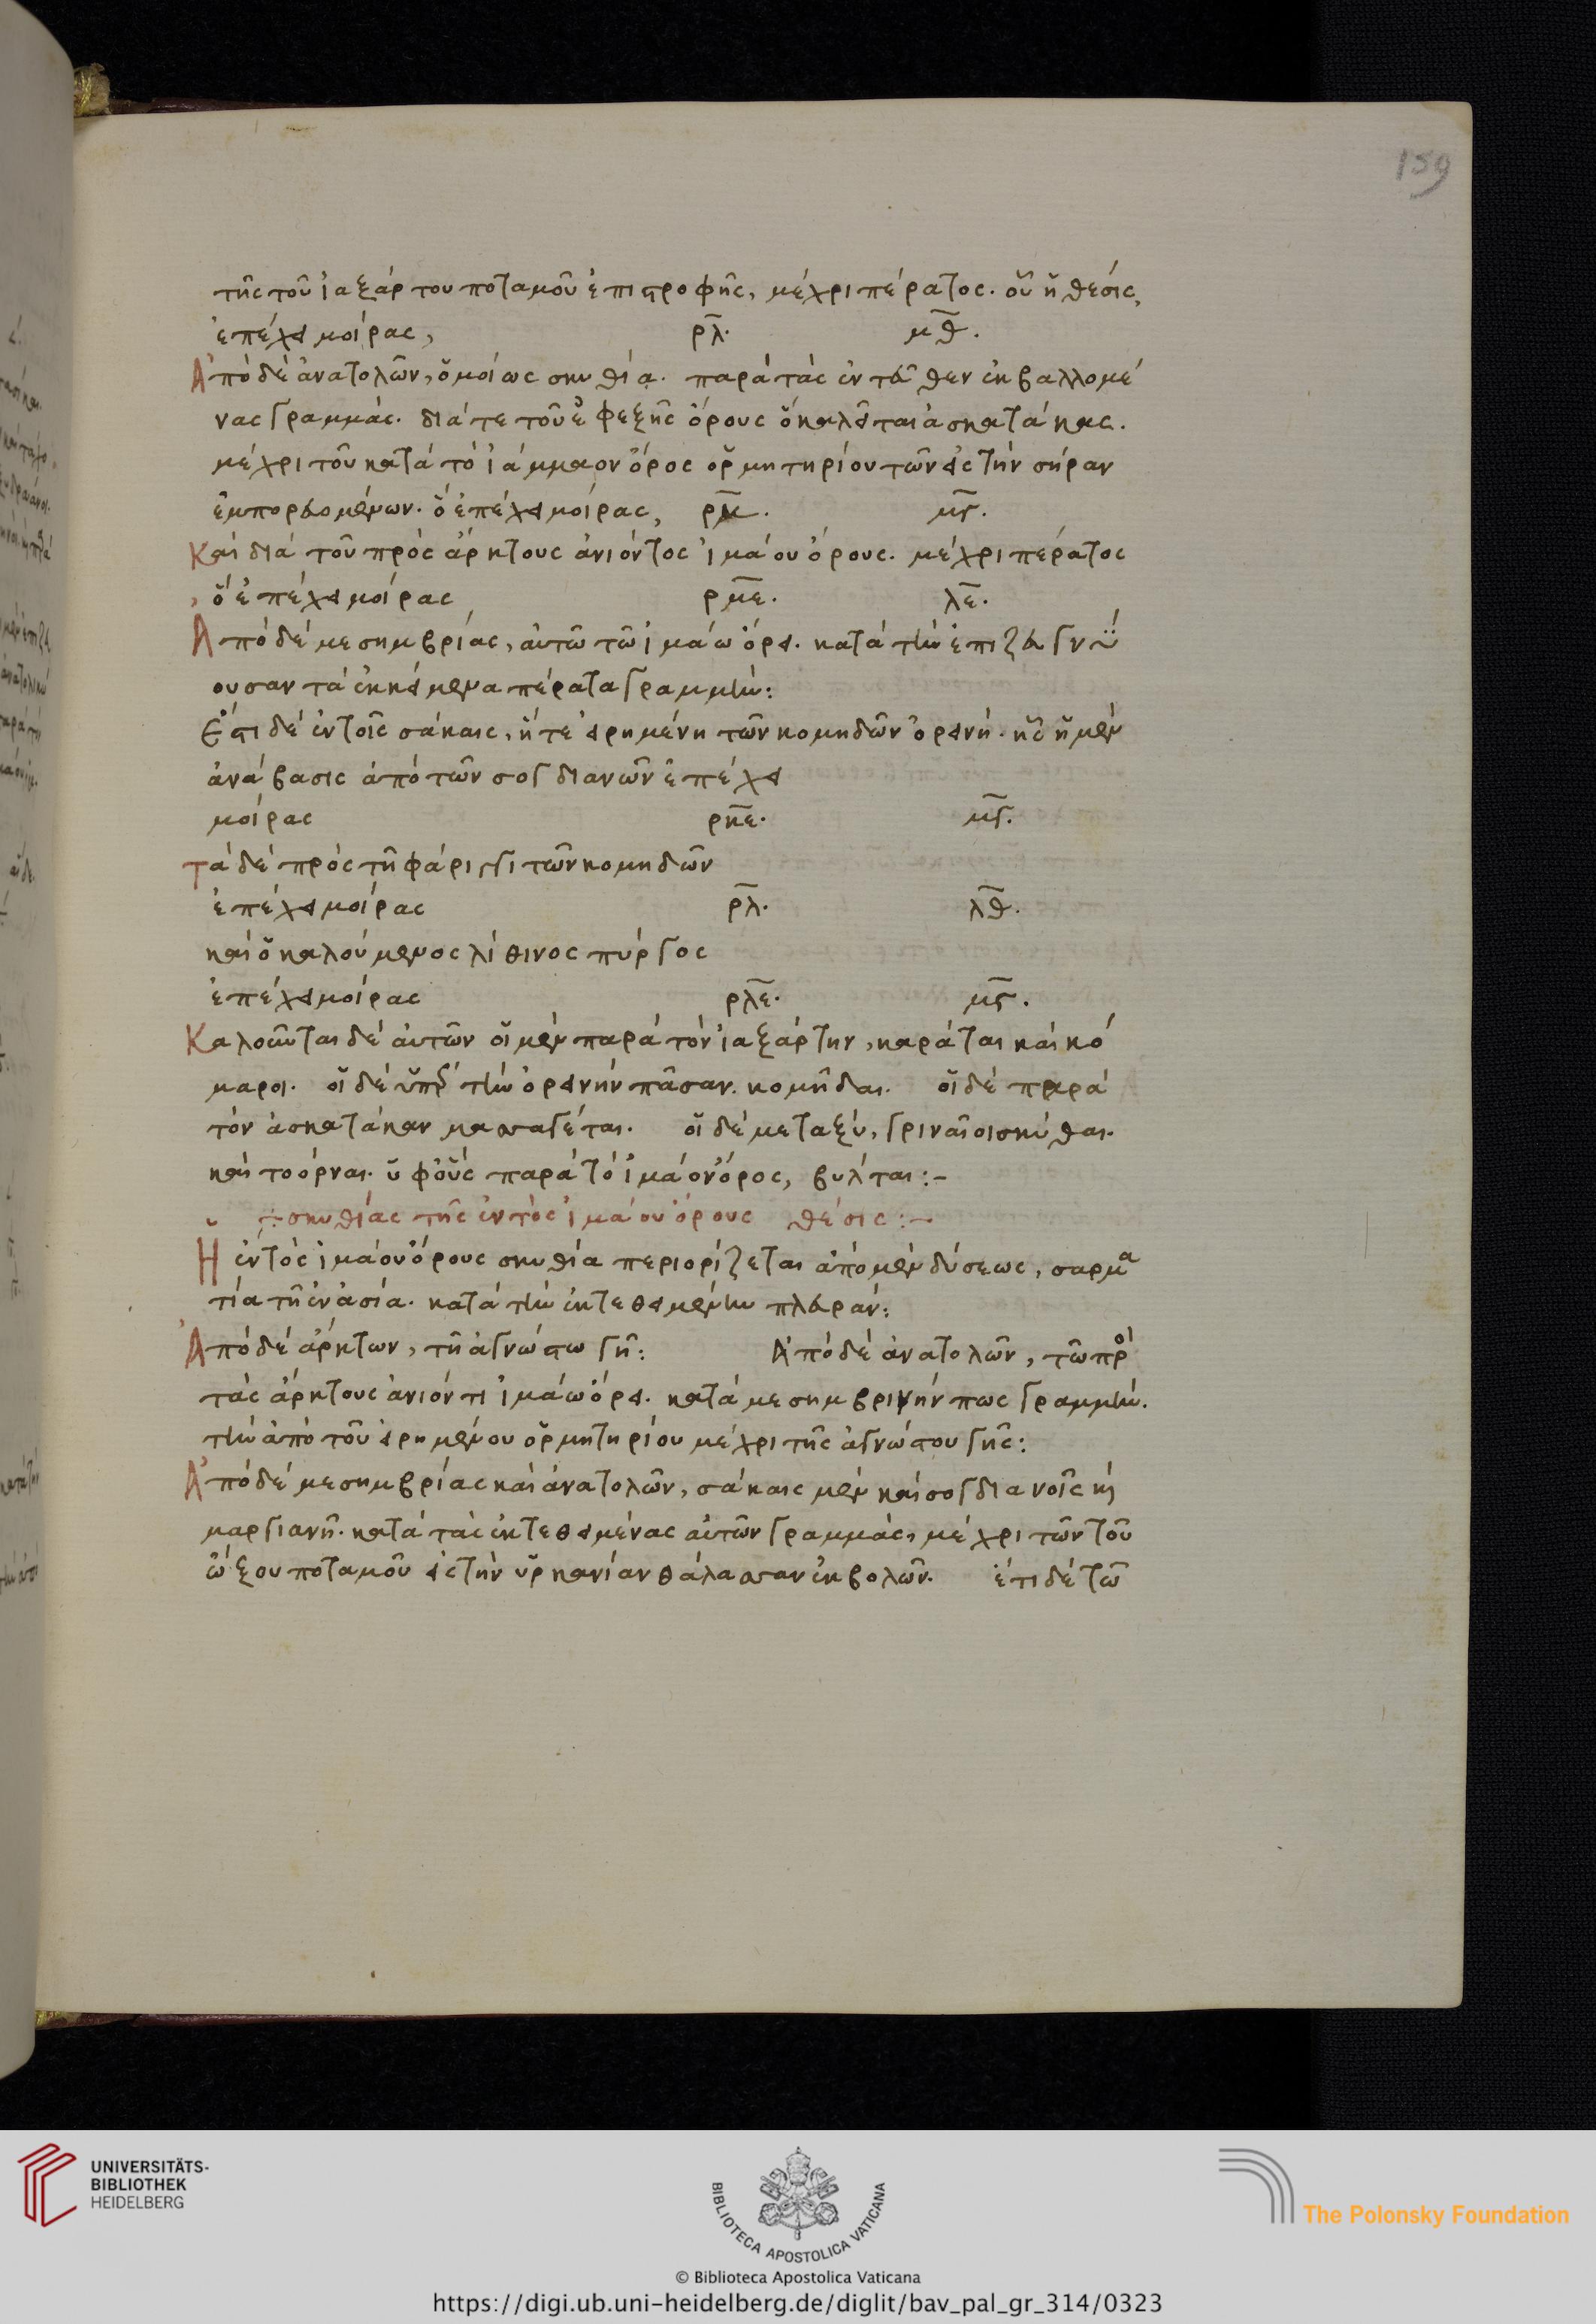 159
τῆς τοῦ ἰαξάρτου ποταμοῦ ἐπιστροφῆς, μέχρι πέρατος. οὗ ἡ θέσις,
ἐπέχει μοίρας, ρλ. μθ.
Ἀπὸ δὲ ἀνατολῶν, ὁμοίως σκυθία. παρὰ τὰς ἐντεῦθεν ἐκβαλλομέ
νας γραμμάς. διά τε τοῦ ἐφεξῆς ὄρους ὃ καλεῖται ἀσκατάκας.
μέχρι τοῦ κατὰ τὸ ἰάμμαον ὄρος ὁρμητηρίου τῶν εἰς τὴν σήραν
ἐμπορευομένων. ὃ ἐπέχει μοίρας, ρμ. μς.
Καὶ διὰ τοῦ πρὸς ἄρκτους ἀνιόντος ἰμάου ὄρους. μέχρι πέρατος
, ὃ ἐπέχει μοίρας ρμε. λε.
Ἀπὸ δὲ μεσημβρίας, αὐτῶ τῶ ἰμάω ὄρει. κατὰ τὴν ἐπιζευγνύ
ουσαν τὰ ἐκκείμενα πέρατα γραμμήν:
Ἔστι δὲ ἐν τοῖς σάκαις, ἥ τε εἰρημένη τῶν κομηδῶν ὀρεινή. ἧς ἡ μὲν
ἀνάβασις ἀπὸ τῶν σογδιανῶν ἐπέχει
μοίρας ρκε. μγ.
τὰ δὲ πρὸς τῆ φάριγγι τῶν κομηδῶν
ἐπέχει μοίρας ρλ. λθ.
καὶ ὁ καλούμενος λίθινος πύργος
ἐπέχει μοίρας ρλε. μς.
Καλοῦνται δὲ αὐτῶν οἱ μὲν παρὰ τὸν ἰαξάρτην, καράται καὶ κό
μαροι. οἱ δὲ ὑπὲρ τὴν ὀρεινὴν πᾶσαν. κομῆδαι. οἱ δὲ παρὰ
τὸν ἀσκατάκαν μασσαγέται. οἱ δὲ μεταξύ, γριναῖοι σκύθαι.
καὶ τοόρναι. ὑφ οὓς παρὰ τὸ ἰμάον ὄρος, βυλται:-
σκυθίας τῆς ἐντὸς ἰμάου ὄρους θέσις:-
Ἡ ἐντὸς ἰμάου ὄρους σκυθία περιορίζεται ἀπὸ μὲν δύσεως, σαρμα
τία τῆ ἐν ἀσία. κατὰ τὴν ἐκτεθειμένην πλευράν:
Ἀπὸ δὲ ἄρκτων, τῆ ἀγνώστω γῆ: Ἀπὸ δὲ ἀνατολῶν, τῶ πρὸ
τὰς ἄρκτους ἀνιόντι ἰμάω ὄρει. κατὰ μεσημβρινήν πως γραμμήν.
τὴν ἀπὸ τοῦ εἰρημένου ὁρμητηρίου μέχρι τῆς ἀγνώστου γῆς:
Ἀπὸ δὲ μεσημβρίας καὶ ἀνατολῶν, σάκαις μὲν καὶ σογδιανοῖς καὶ
μαργιανῆ. κατὰ τὰς ἐκτεθειμένας αὐτῶν γραμμάς, μέχρι τῶν τοῦ
ὤξου ποταμοῦ εἰς τὴν ὑρκανίαν θάλασσαν ἐκβολῶν. ἔτι δὲ τῶ
UNIVERSITÄTS-
BIBLIOTHEK
HEIDELBERG
BIBLIOTECA APOSTOLICA VATICANA
The Polonsky Foundation
© Biblioteca Apostolica Vaticana
https://digi.ub.uni-heidelberg.de/diglit/bav_pal_gr_314/0323